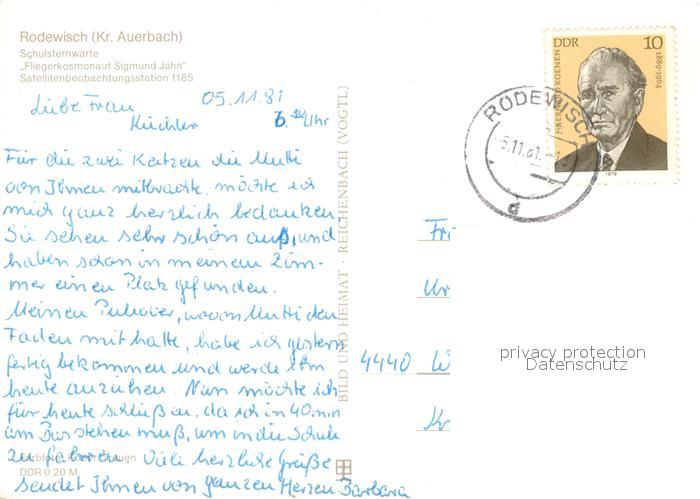 Rodewisch (Kr. Auerbach)
Schulsternwarte
„Fliegerkosmonaut Sigmund Jähn"
Satellitenbeobachtungsstation 1185
Liebe Frau 05.11.81
Küchler 6.30 Uhr
Für die zwei Katzen die Mutti
von Ihnen mitbrachte, möchte ich
mich ganz herzlich bedanken.
Sie sehen sehr schön aus, und
haben schon in meinem Zim-
mer einen Platz gefunden.
Meinen Pullover, wovon Mutti den
Faden mit hatte, habe ich gestern
fertig bekommen und werde ihn
heute anziehen. Nun möchte ich
für heute schließen, da ich in 40 min
am Bus stehen muß, um in die Schule
zu fahren. Viele herzliche Grüße
sendet Ihnen von ganzen Herzen Barbara
DDR 0,20 M
BILD UND HEIMAT · REICHENBACH (VOGTL)
DDR 10
BERNARD KOENEN
1889-1964
1979
RODEWISCH
-5.11.81.-
Fr
Ur
4440 W
Kr
privacy protection
Datenschutz